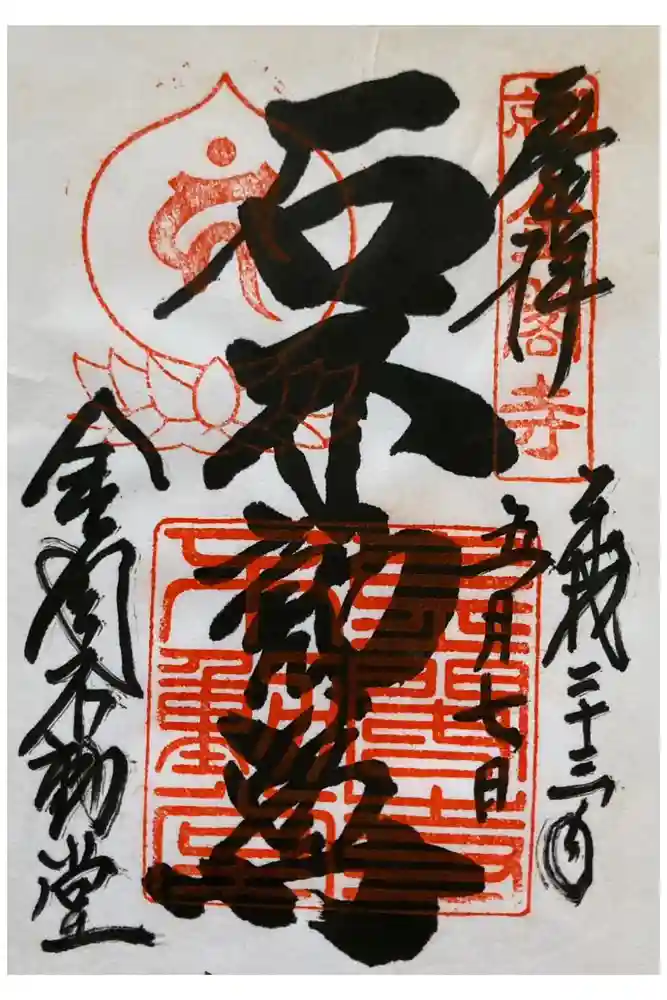 奉拝
閣寺
平成二十三年
五月七日
石不動尊
金閣不動堂